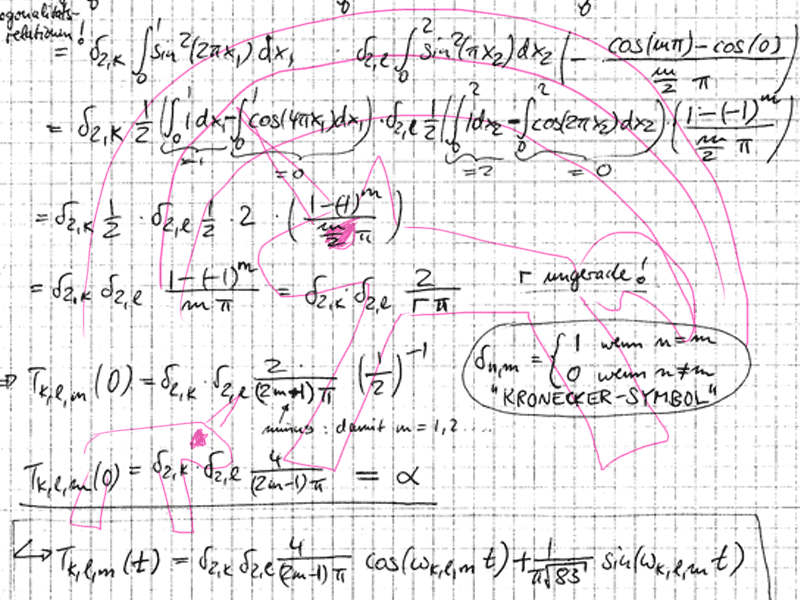 Orthogonalitäts-
relationen!
= δ_{2,k} ∫_0^1 sin²(2πx₁) dx₁ · δ_{2,l} ∫_0^2 sin²(πx₂) dx₂ (− (cos(mπ) − cos(0)) / (m/2 π))
= δ_{2,k} 1/2 (∫_0^1 1 dx₁ − ∫_0^1 cos(4πx₁) dx₁) · δ_{2,l} 1/2 (∫_0^2 1 dx₂ − ∫_0^2 cos(2πx₂) dx₂) · ((1 − (−1)^m) / (m/2 π))
=1 =0 =2 =0
= δ_{2,k} 1/2 · δ_{2,l} 1/2 · 2 · ((1 − (−1)^m) / (m/2 π))
= δ_{2,k} δ_{2,l} (1 − (−1)^m) / (mπ) = δ_{2,k} · δ_{2,l} 2 / (rπ) r ungerade!
δ_{n,m} = { 1 wenn n = m
0 wenn n ≠ m
"KRONECKER-SYMBOL"
⇒ T_{k,l,m}(0) = δ_{2,k} · δ_{2,l} 2 / ((2m−1)π) (1/2)^{−1}
minus: damit m = 1,2 ....
T_{k,l,m}(0) = δ_{2,k} · δ_{2,l} 4 / ((2m−1)π) = α
↳ T_{k,l,m}(t) = δ_{2,k} δ_{2,l} 4 / ((2m−1)π) cos(ω_{k,l,m} t) + 1 / (π√83) sin(ω_{k,l,m} t)